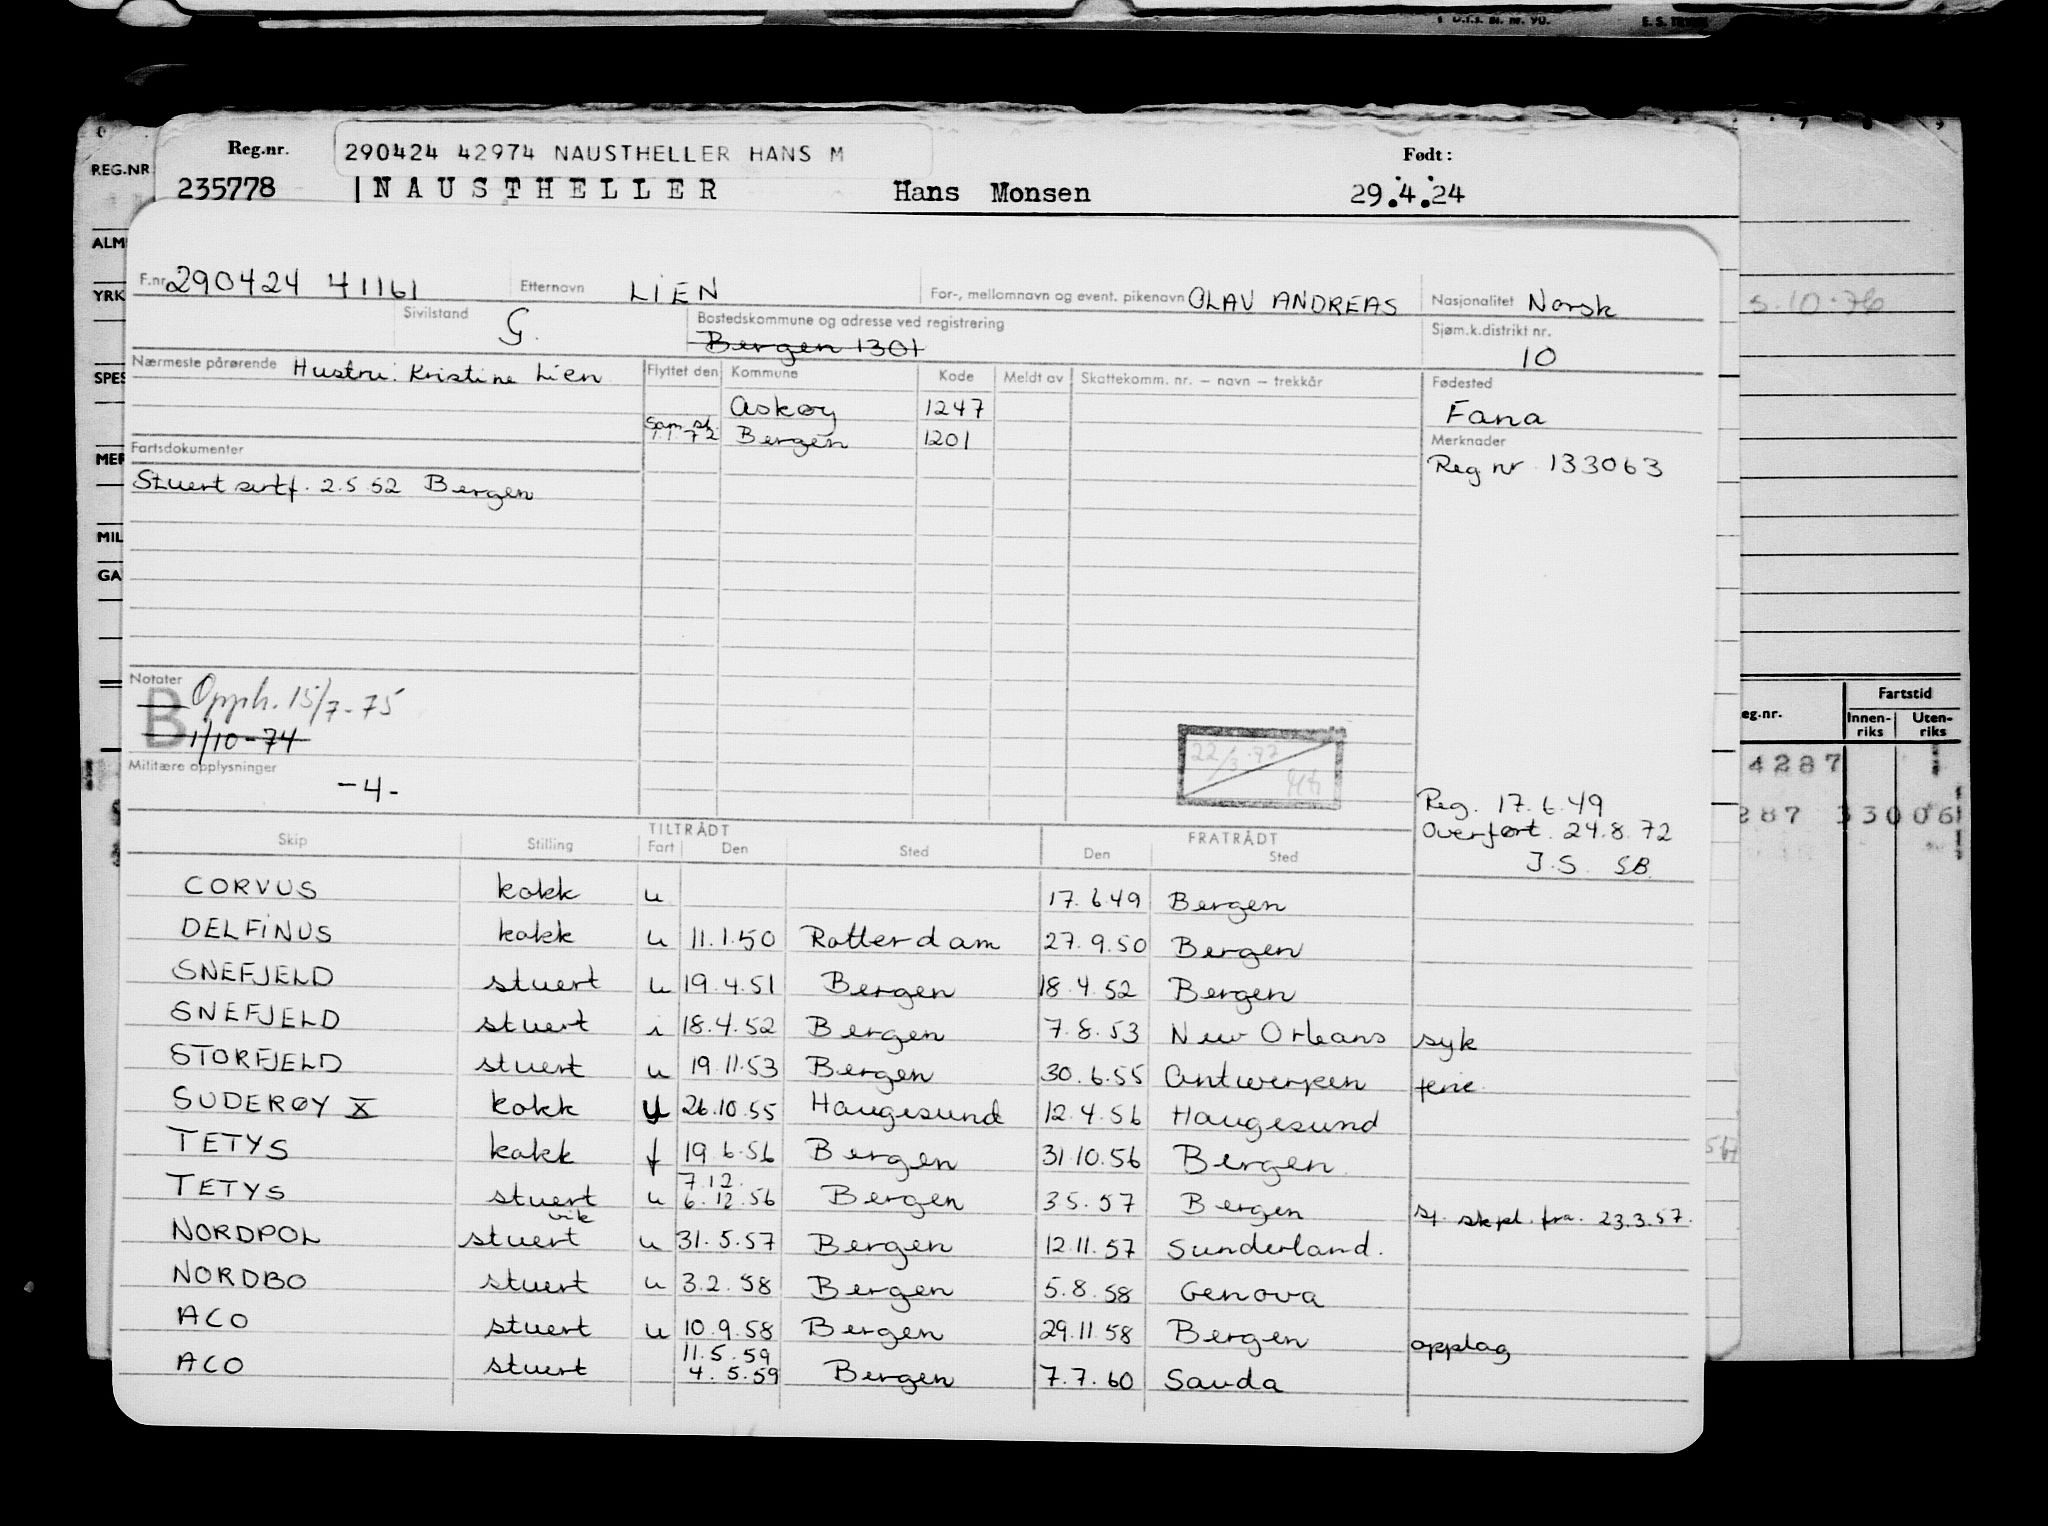 D.T.S. Bl. nr. 90.
Reg.nr. 290424 42974 NAUSTHELLER HANS M Født:
REG.NR 235778 NAUSTHELLER Hans Monsen 29.4.24
ALM
F.nr. 290424 41161 Etternavn LIEN For-, mellomnavn og event. pikenavn OLAV ANDREAS Nasjonalitet Norsk
YRK 5.10.76
Sivilstand G. Bostedskommune og adresse ved registrering Sjøm.k.distrikt nr.
Bergen 1301 10
Nærmeste pårørende Hustru: Kristine Lien Flyttet den Kommune Kode Meldt av Skattekomm. nr. – navn – trekkår Fødested
SPES
Askøy 1247 Fana
Sam. sk.
1.1.72 Bergen 1201 Merknader
Fartsdokumenter
MER Reg nr 133063
Stuert sertf. 2.5.52 Bergen
MIL
GA
Notater
B Opph. 15/7-75
1/10-74
eg.nr. Fartstid
Innen-riks Uten-riks
22/3.77
Militære opplysninger
-4-
4287
287 33006
Reg. 17.6.49
Overført 24.8.72
J.S. SB.
Skip Stilling TILTRÅDT FRATRÅDT
Fart Den Sted Den Sted
CORVUS kokk u 17.6.49 Bergen
DELFINUS kokk u 11.1.50 Rotterdam 27.9.50 Bergen
SNEFJELD stuert u 19.4.51 Bergen 18.4.52 Bergen
SNEFJELD stuert i 18.4.52 Bergen 7.8.53 New Orleans syk
STORFJELD stuert u 19.11.53 Bergen 30.6.55 Antwerpen ferie
SUDERØY X kokk 26.10.55 Haugesund 12.4.56 Haugesund
TETYS kokk f 19.6.56 Bergen 31.10.56 Bergen
7.12.
TETYS stuert u 6.12.56 Bergen 3.5.57 Bergen sj. skpl. fra. 23.3.57.
vik
NORDPOL stuert u 31.5.57 Bergen 12.11.57 Sunderland.
NORDBO stuert u 3.2.58 Bergen 5.8.58 Genova
ACO stuert u 10.9.58 Bergen 29.11.58 Bergen opplag
11.5.59
ACO stuert 4.5.59 Bergen 7.7.60 Sauda